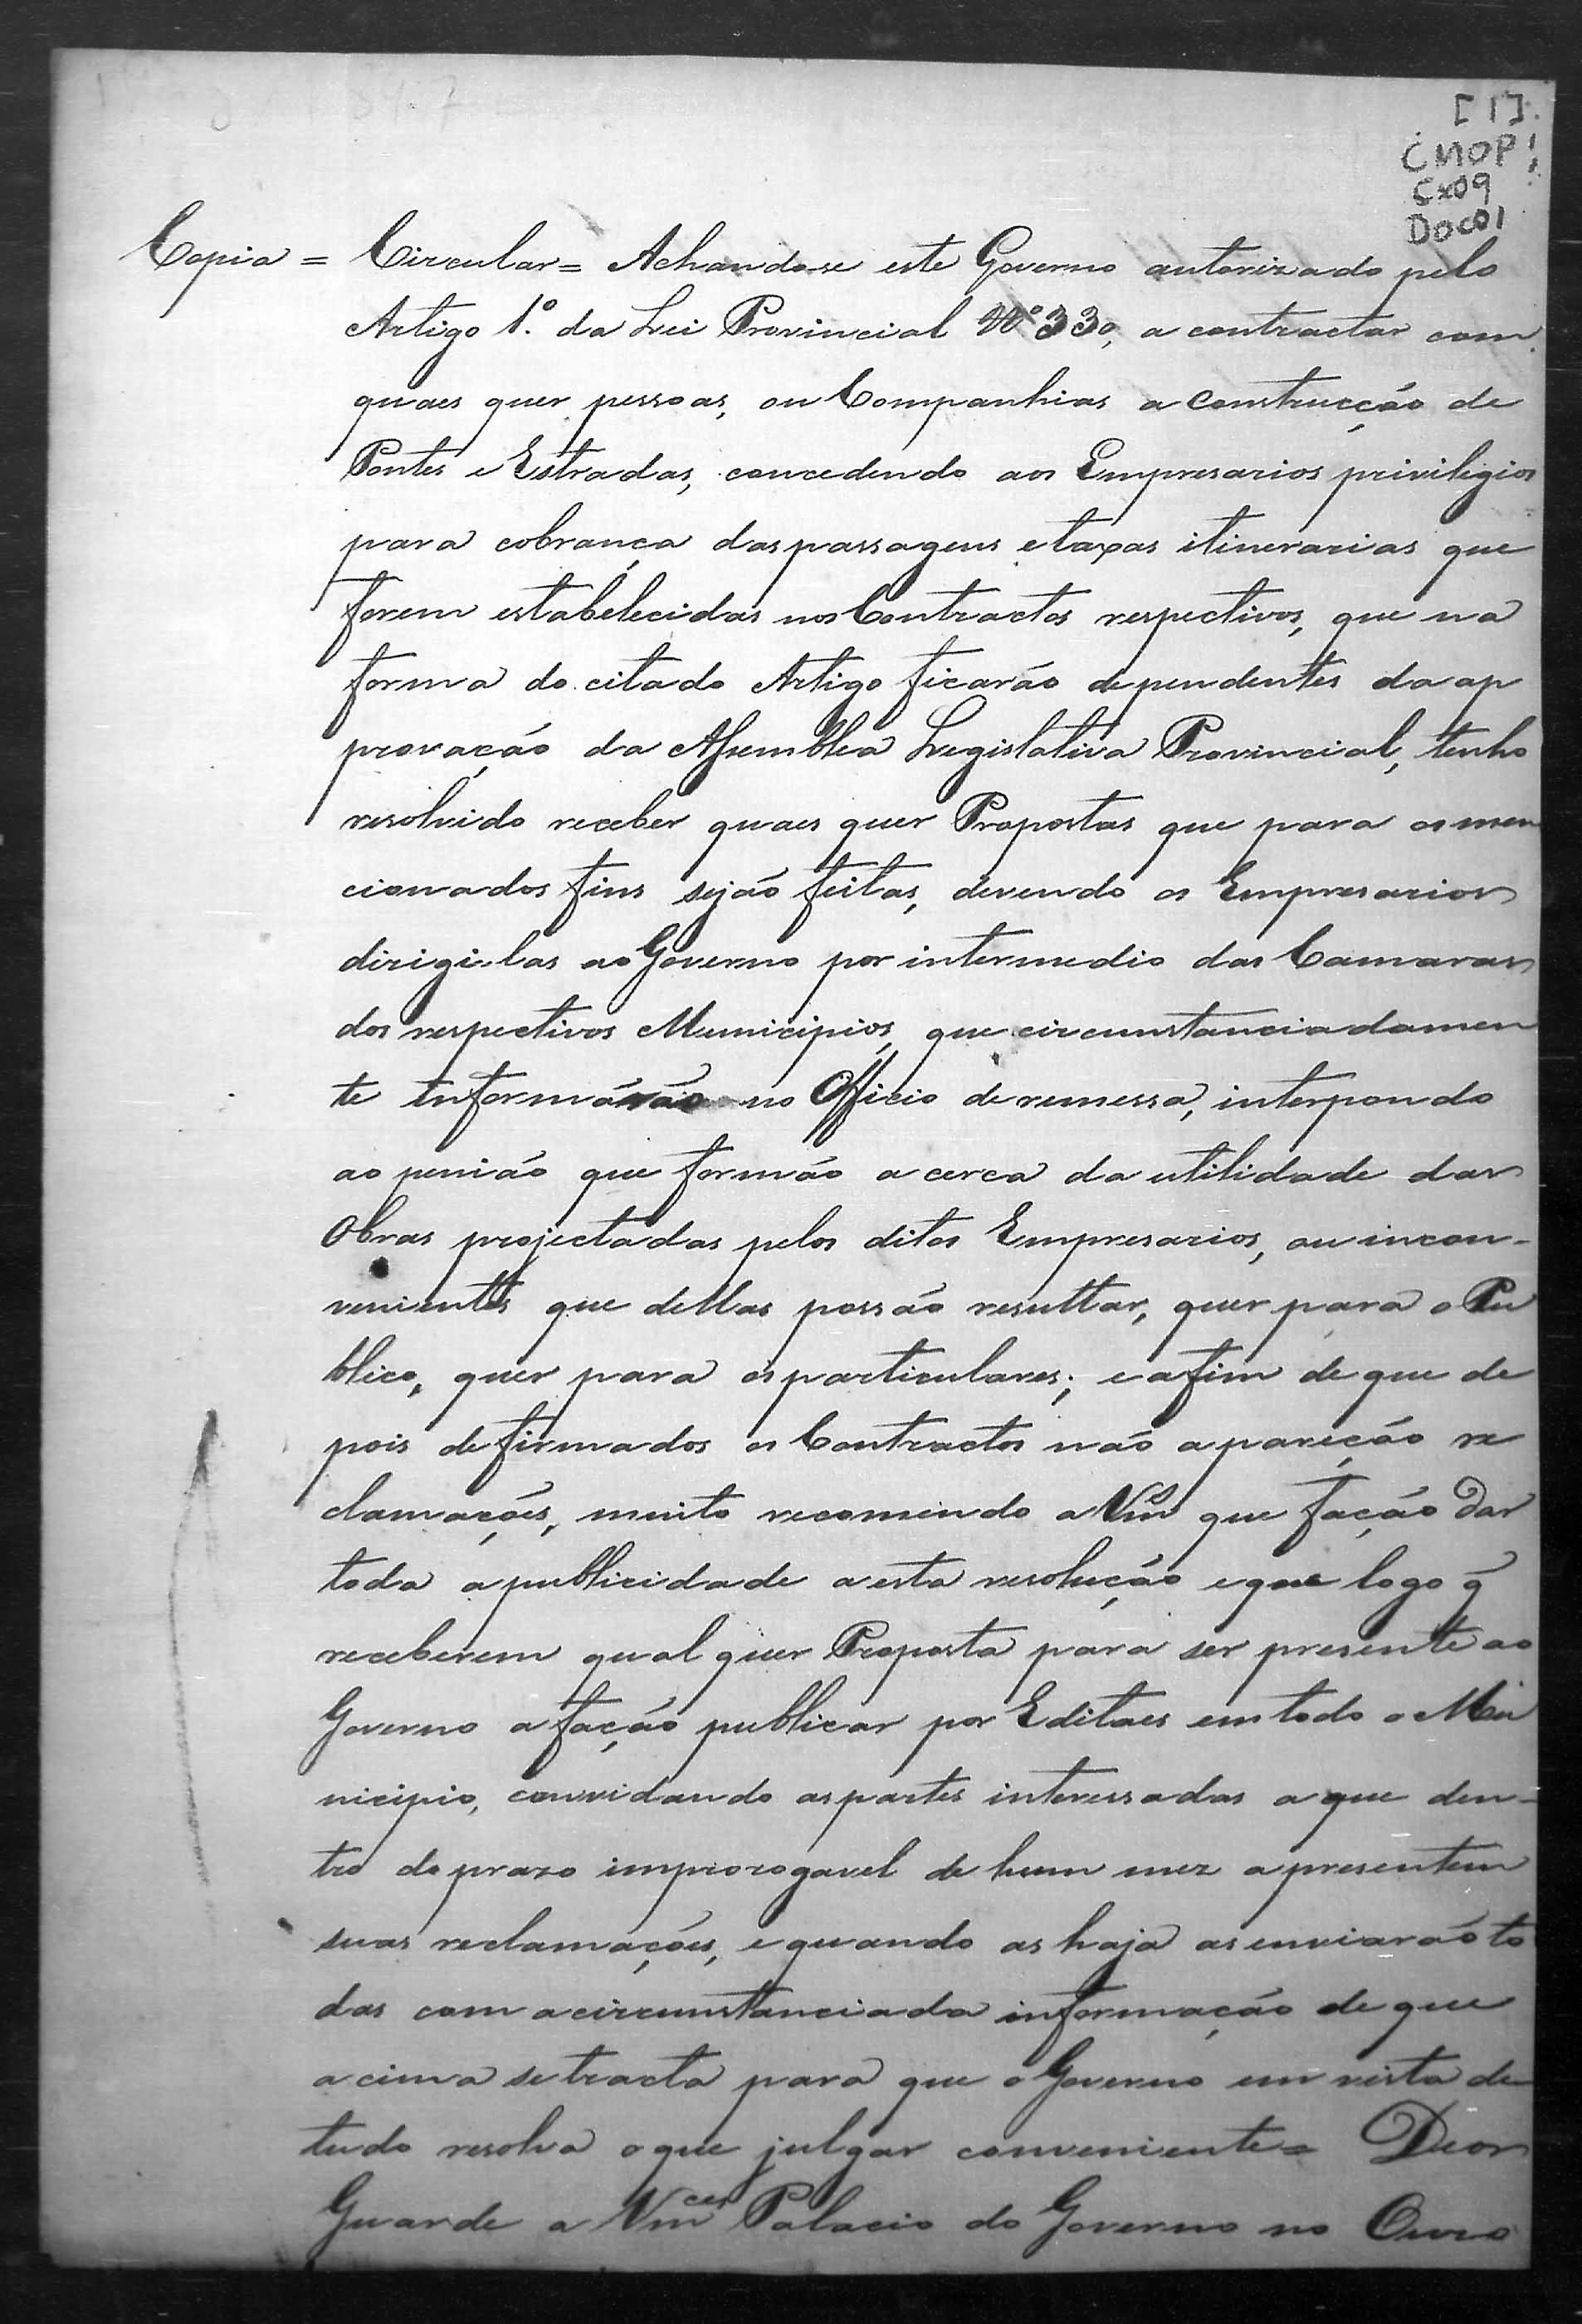 [1]
CMOP
Cx09
Doc01
Copia = Circular = Achando-se este Governo autorizado pelo
Artigo 1.º da Lei Provincial Nº 330, a contractar com
quaes quer pessoas, ou Companhias a Construcção de
Pontes e Estradas, concedendo aos Empresarios privilegios
para cobrança das passagens e taxas itinerarias que
forem estabelecidas nos Contractos respectivos, que na
forma do citado Artigo ficarão dependentes da ap
provação da Assemblea Legislativa Provincial, tenho
resolvido receber quaes quer Propostas que para os men
cionados fins sejão feitas, devendo os Empresarios
dirigi-las ao Governo por intermedio das Camaras
dos respectivos Municipios, que circumstanciadamen
te informárão no Officio de remessa, interpondo
a openião que formão a cerca da utilidade das
Obras projectadas pelos ditos Empresarios, ou incon-
venientes que dellas possão resultar, quer para o Pu
blico, quer para os particulares; e a fim de que de
pois de firmados os Contractos não apareção re
clamações, muito recomendo a Vms que fação dar
toda a publicidade a esta resolução e que logo q̃
receberem qual quer Proposta para ser presente ao
Governo a fação publicar por Editaes em todo o Mu
nicipio, convidando as partes interessadas a que den-
tro do prazo improrogavel de hum mez apresentem
suas reclamações, e quando as haja as enviarão to
das com a circumstanciada informação de que
acima se tracta para que o Governo em vista de
tudo resolva o que julgar conveniente = Deos
Guarde a Vmces Palacio do Governo no Ouro